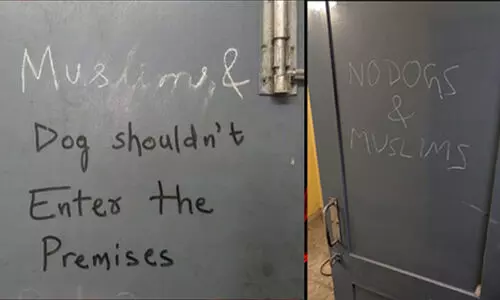 Muslims &
Dog shouldn't
Enter the
Premises
NO DOGS
&
MUSLIMS